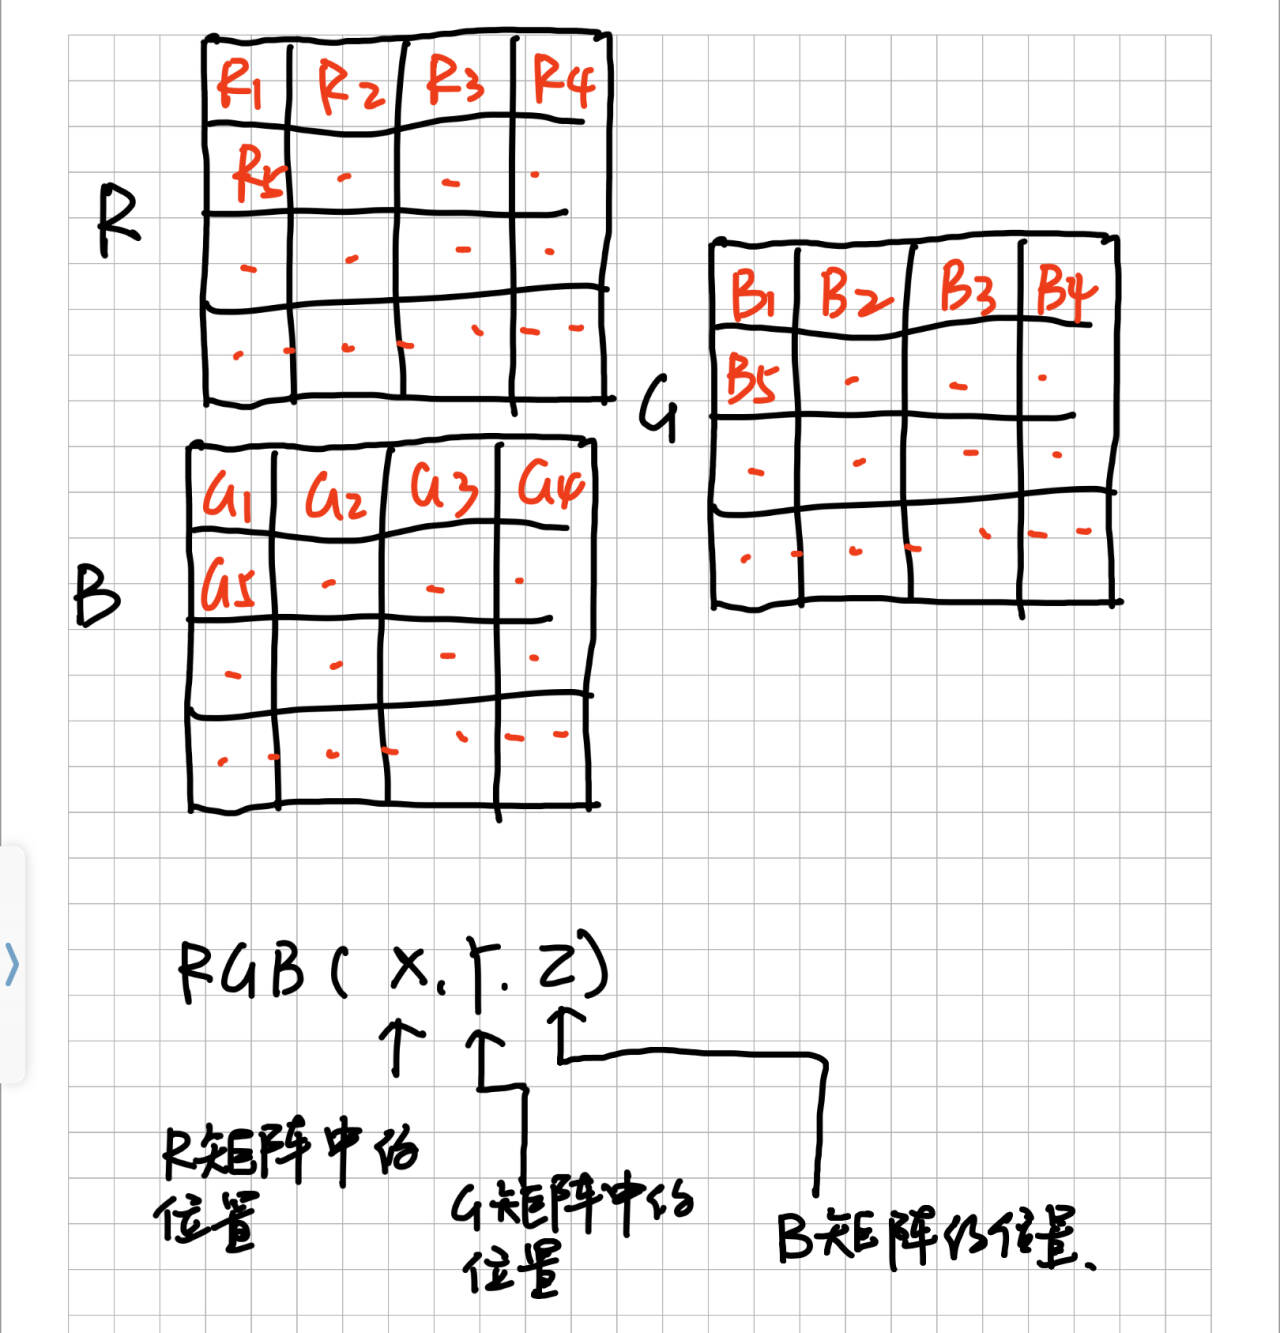 R
R1 R2 R3 R4
R5
G
B1 B2 B3 B4
B5
B
G1 G2 G3 G4
G5
RGB( X. Y. Z)
R矩阵中的
位置
G矩阵中的
位置
B矩阵的位置、